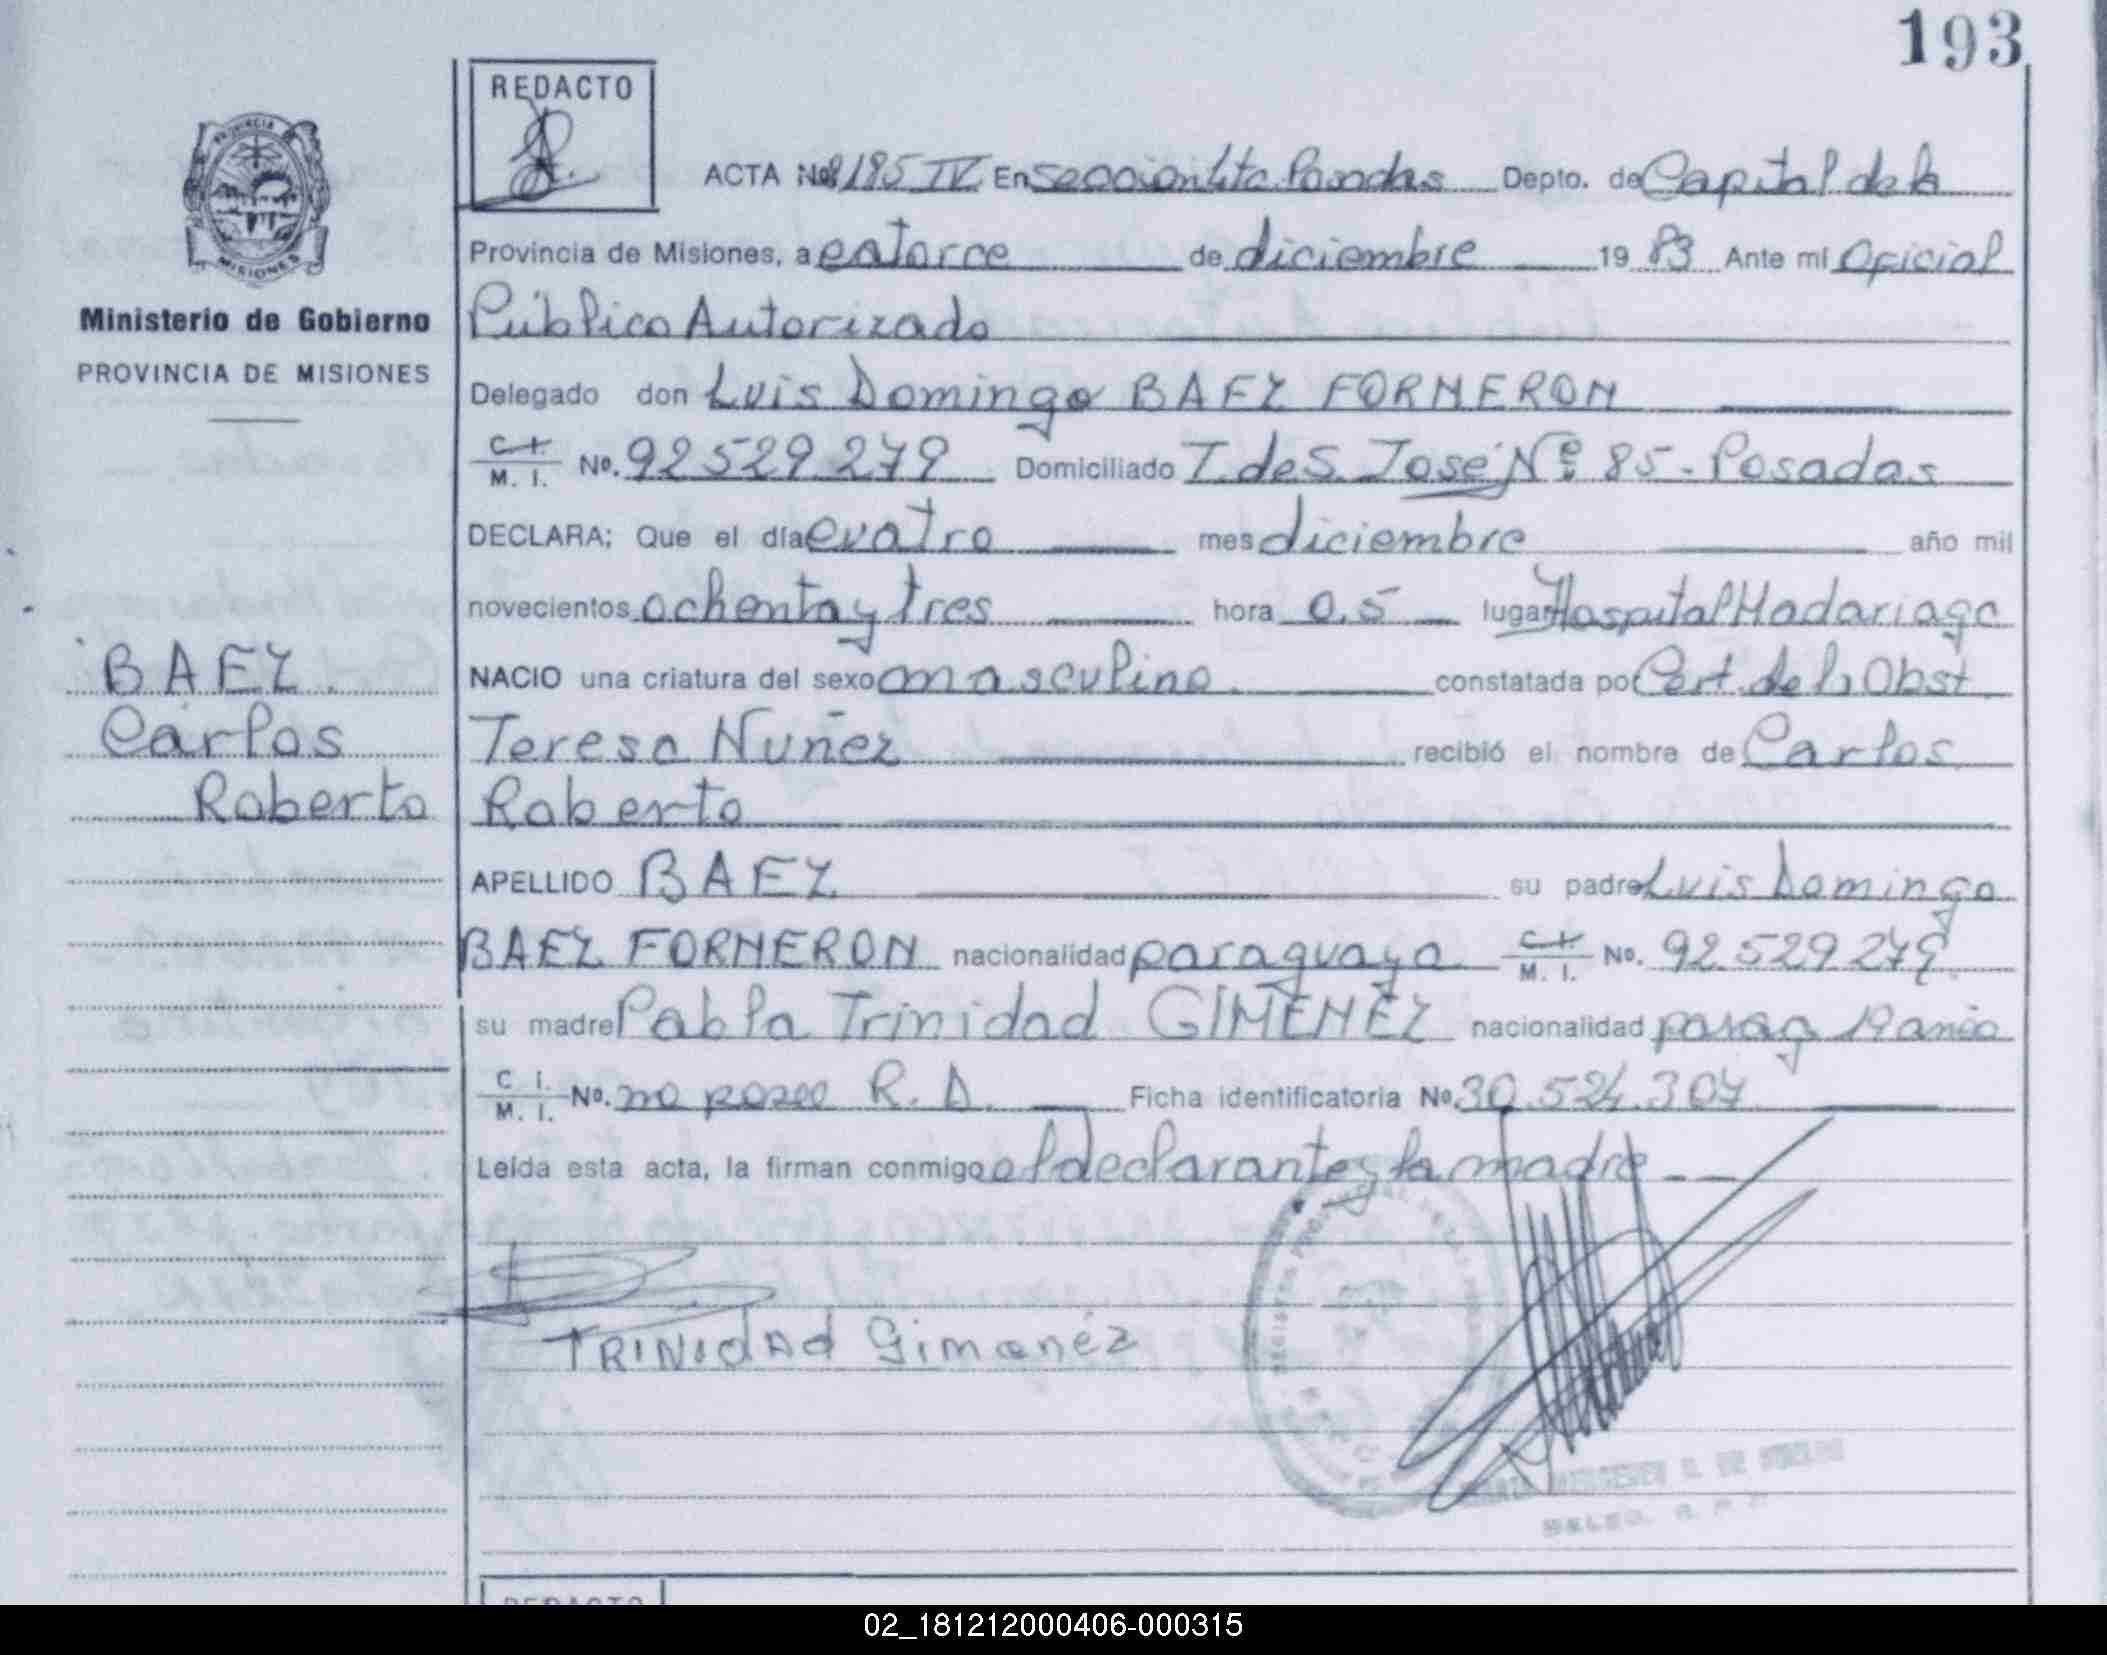 193
REDACTO
PROVINCIA
MISIONES
Ministerio de Gobierno
PROVINCIA DE MISIONES
ACTA No 2185 IV En seccion 4ta. Posadas Depto. de Capital de la
Provincia de Misiones, a catorce de diciembre 1983 Ante mí Oficial
Público Autorizado
Delegado don Luis Domingo BAEZ FORNERON
C. I. M. I. No. 92.529.279 Domiciliado T. de S. José Nº 85 - Posadas
DECLARA; Que el día cuatro mes diciembre año mil
novecientos ochenta y tres hora 0,5 lugar Hospital Madariaga
NACIO una criatura del sexo masculino constatada por Cert. de la Obst
Teresa Nuñez recibió el nombre de Carlos
Roberto
BAEZ
Carlos
Roberto
APELLIDO BAEZ su padre Luis Domingo
BAEZ FORNERON nacionalidad paraguaya C. I. M. I. No. 92.529.279
su madre Pabla Trinidad GIMENEZ nacionalidad parag 19 años
C. I. M. I. No. no posee R. D. Ficha identificatoria No. 30.524.307
Leída esta acta, la firman conmigo el declarante y la madre
TRINIdAd Gimenéz
REDACTO
02_181212000406-000315